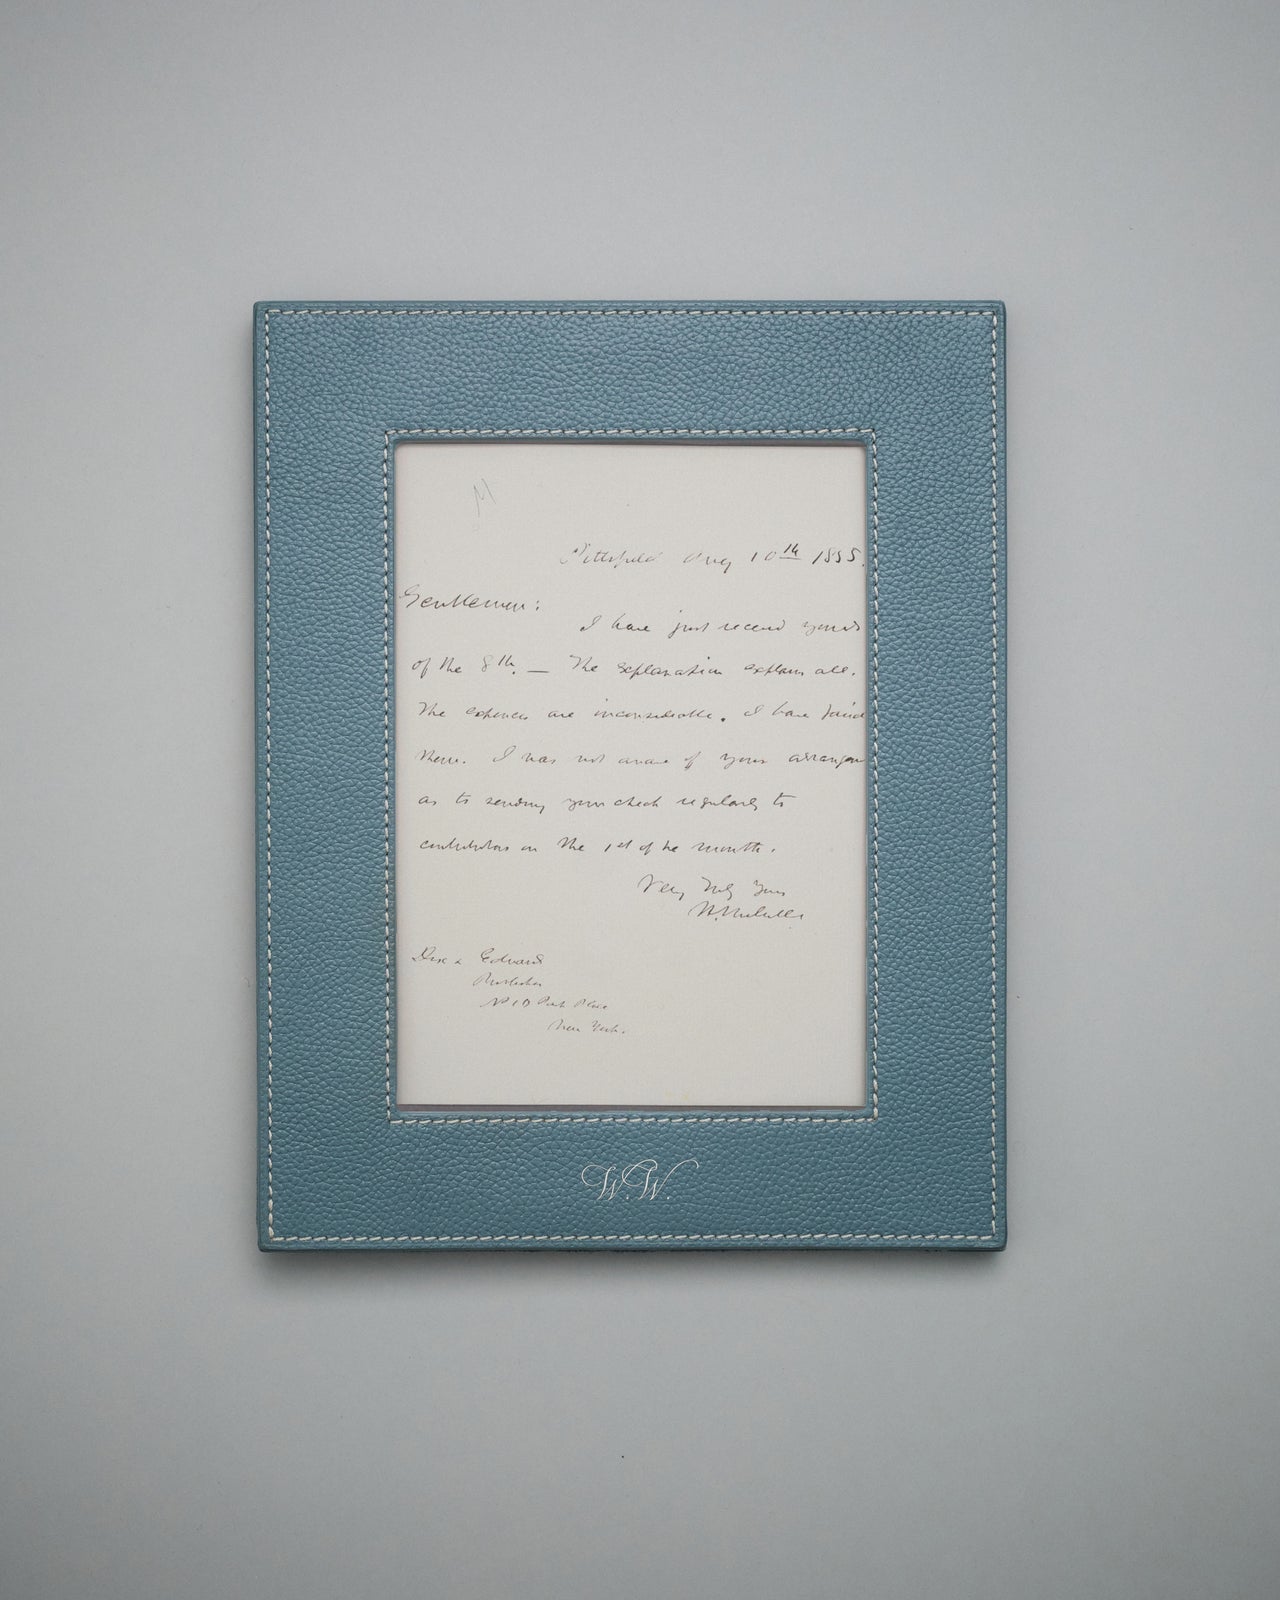 M
Pittsfield Aug 10th 1855.
Gentlemen:
I have just received yours
of the 8th. — The explanation explains all.
The expenses are inconsiderable. I have paid
them. I was not aware of your arrangem
as to sending your check regularly to
contributors on the 1st of the month.
Very Truly Yours
H. Melville
Dix & Edwards
No 10 Park Place
New York.
W.W.